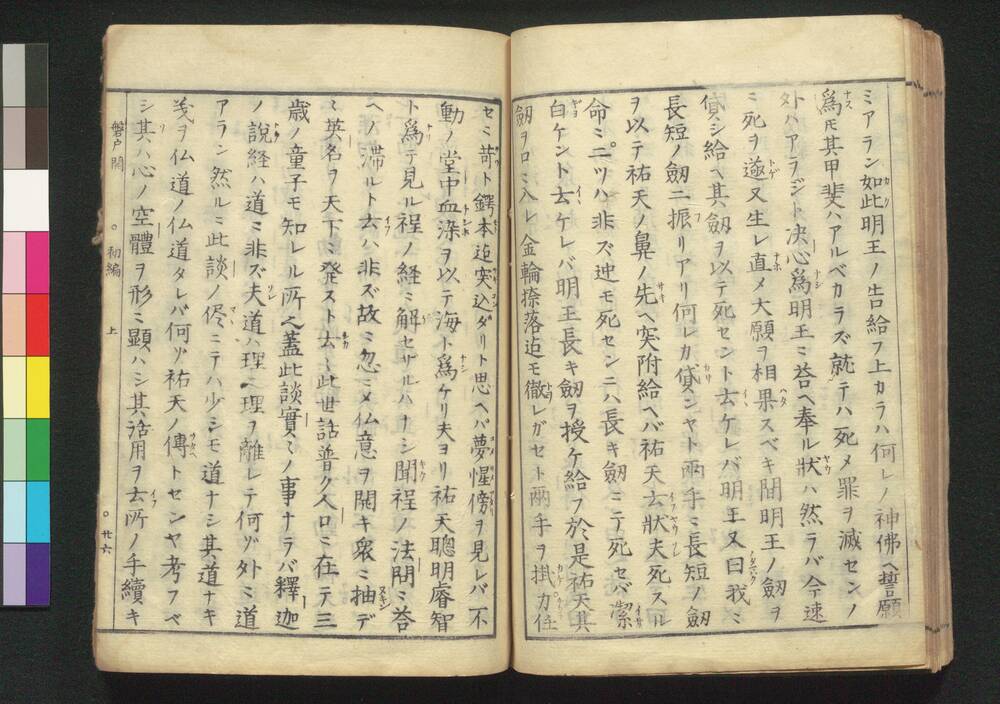 ミアラン如此明王ノ告給フ上カラハ何レノ神佛ヘ誓願
為モ其甲斐ハアルベカラズ就テハ死メ罪ヲ滅センノ
外ハアラジト决心為明王ミ荅ヘ奉ル狀ハ然ラバ今速
ミ死ヲ遂又生レ直メ大願ヲ相果スベキ間明王ノ劔ヲ
貸シ給ヘ其劔ヲ以テ死セント去ケレバ明王又曰我ミ
長短ノ劔二振リアリ何レカ貸ンヤト両手ミ長短ノ劔
ヲ以テ祐天ノ鼻ノ先ヘ突附給ヘバ祐天去狀夫死スル
命ミ二ツハ非ズ迚モ死センニハ長キ劔ニテ死セバ潔
白ケント去ケレバ明王長キ劔ヲ授ケ給フ於是祐天其
劔ヲロミ入レ金輪捺落迠モ徹レガセト両手ヲ掛力任
セミ苛ト鍔本迠突込ダリト思ヘバ夢惺傍ヲ見レバ不
動ノ堂中血染ヲ以テ海ト為ケリ夫ヨリ祐天聰明睿智
ト為テ見ル程ノ経ミ解セザルハナシ聞程ノ法問ミ荅
ヘノ滞ルト去ハ非ズ故ミ忽ミメ仏意ヲ開キ衆ミ抽デ
ミ英名ヲ天下ミ発スト去ミ此世話普ク人ロミ在テ三
歳ノ童子モ知レル所ヘ蓋此談實ミノ事ナラバ釋迦
ノ說経ハ道ミ非ズ夫道ハ理ヘ理ヲ離レテ何ゾ外ミ道
アラン然ルミ此談ノ侭ミテハ少シモ道ナシ其道ナキ
㦮ヲ仏道ノ仏道タレバ何ゾ祐天ノ傳トセンヤ考フベ
シ其ハ心ノ空體ヲ形ミ顕ハシ其活用ヲ去所ノ手續キ
磐戸開　○初編　上　○廿六